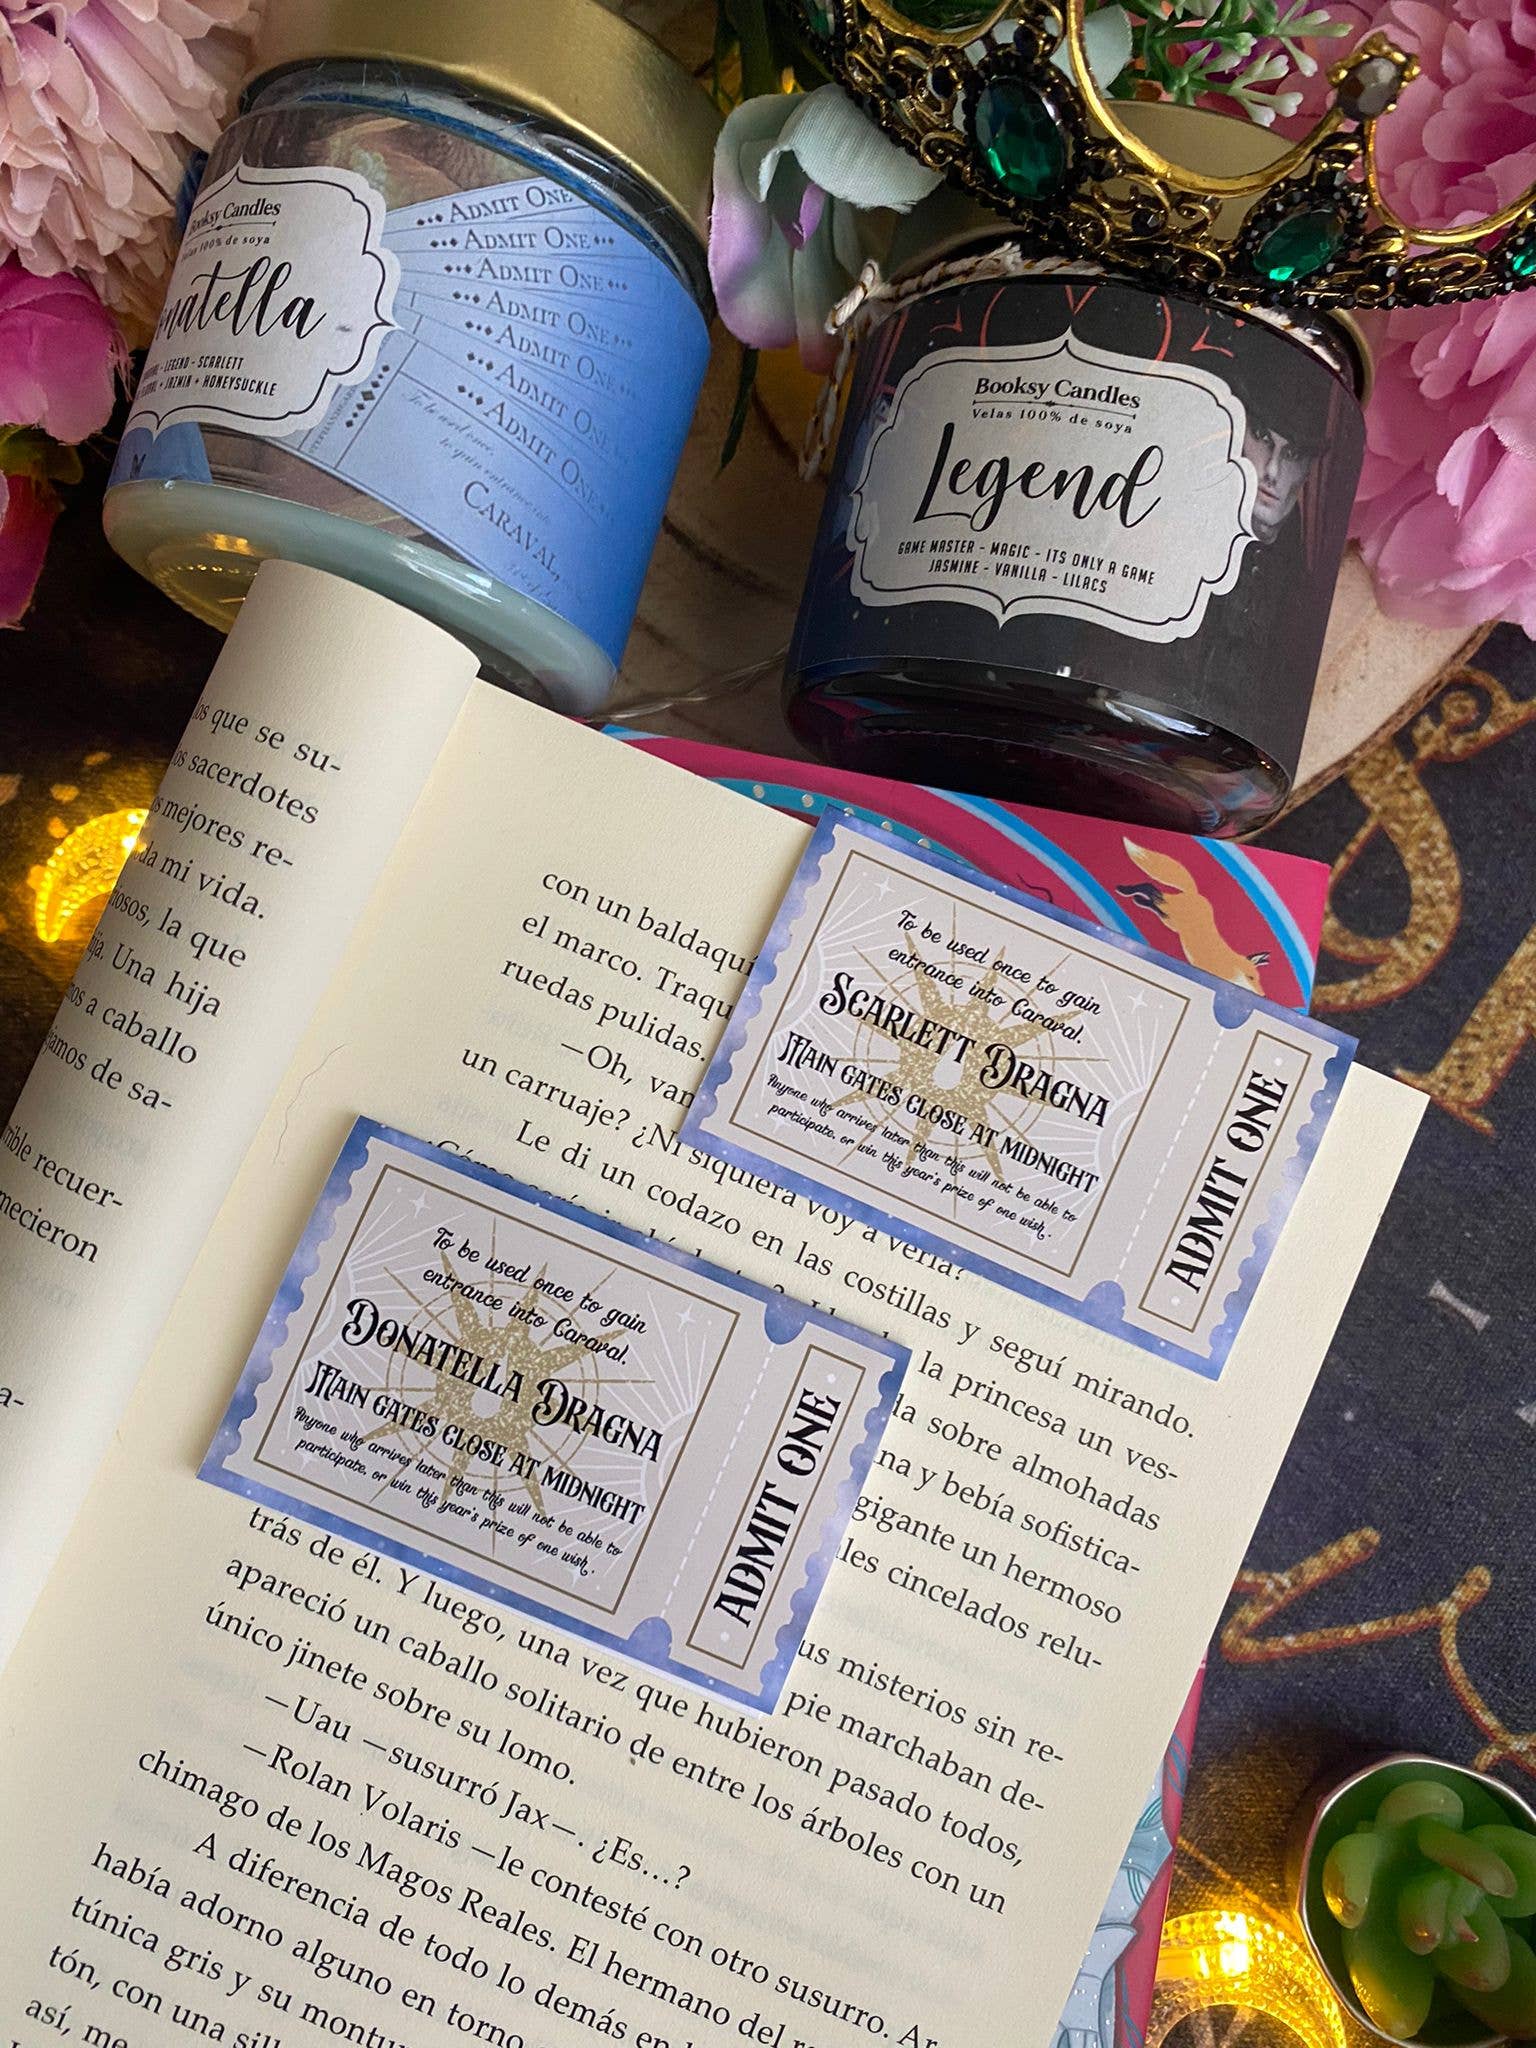 Booksy Candles
Velas 100% de soya
LEGEND - SCARLETT
JAZMIN + HONEYSUCKLE
ADMIT ONE
ADMIT ONE
ADMIT ONE
ADMIT ONE
ADMIT ONE
ADMIT ONE
ADMIT ONE
to gain entrance into
CARAVAL
Booksy Candles
Velas 100% de soya
Legend
GAME MASTER - MAGIC - ITS ONLY A GAME
JASMINE - VANILLA - LILACS
que se su-
sacerdotes
mejores re-
mi vida.
la que
Una hija
a caballo
de sa-
recuer-
con un
el marco.
ruedas pulidas.
—Oh,
un carruaje? ¿Ni siquiera voy a verla?
Le di un codazo en las costillas y seguí mirando.
la princesa un ves-
sobre almohadas
na y bebía sofistica-
gigante un hermoso
cincelados relu-
misterios sin re-
pie marchaban de-
trás de él. Y luego, una vez que hubieron pasado todos,
apareció un caballo solitario de entre los árboles con un
único jinete sobre su lomo.
—Uau —susurró Jax—. ¿Es...?
—Rolan Volaris —le contesté con otro susurro. Ar
chimago de los Magos Reales. El hermano del
A diferencia de todo lo demás en
había adorno alguno en torno
túnica gris y su
tón, con una
así, me
To be used once to gain
entrance into Caraval.
SCARLETT DRAGNA
MAIN GATES CLOSE AT MIDNIGHT
Anyone who arrives later than this will not be able to
participate, or win this year's prize of one wish.
ADMIT ONE
To be used once to gain
entrance into Caraval.
DONATELLA DRAGNA
MAIN GATES CLOSE AT MIDNIGHT
Anyone who arrives later than this will not be able to
participate, or win this year's prize of one wish.
ADMIT ONE